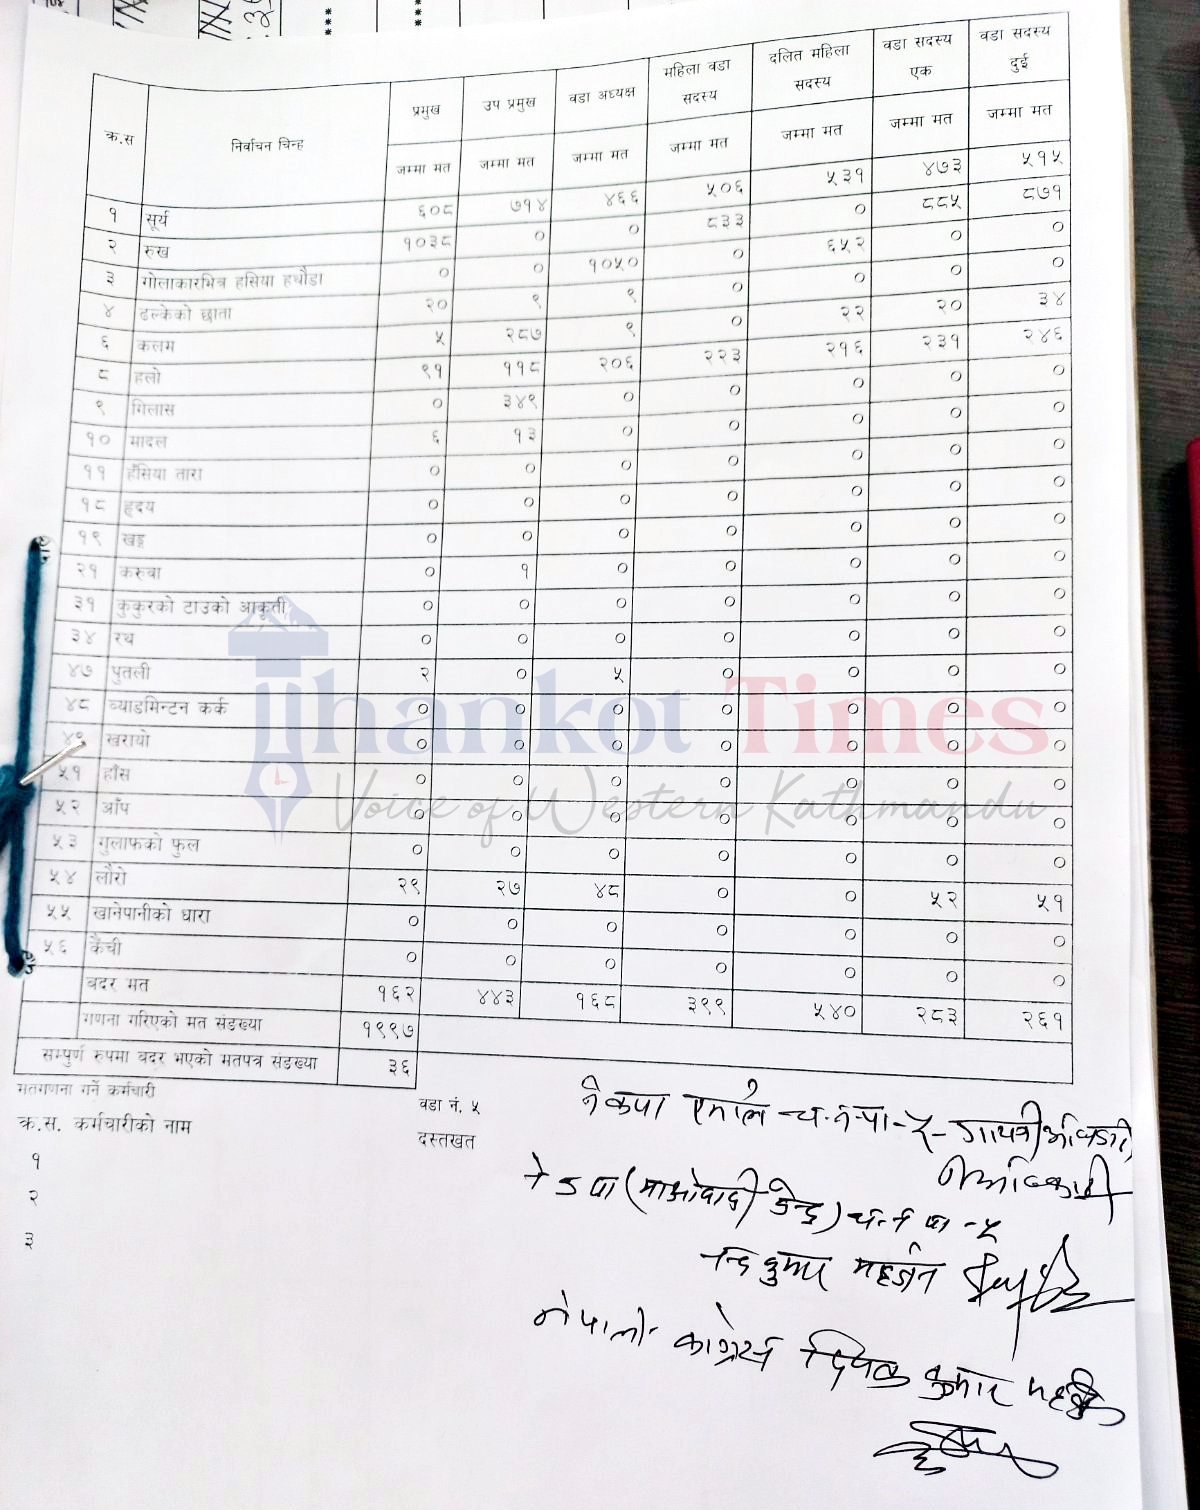 क्र.स निर्वाचन चिन्ह प्रमुख उप प्रमुख वडा अध्यक्ष महिला वडा सदस्य दलित महिला सदस्य वडा सदस्य एक वडा सदस्य दुई
जम्मा मत जम्मा मत जम्मा मत जम्मा मत जम्मा मत जम्मा मत जम्मा मत
१ सूर्य ६०८ ७१४ ४६६ ५०६ ५३१ ४७३ ५१५
२ रुख १०३८ ० ० ८३३ ० ८८५ ८७१
३ गोलाकारभित्र हसिया हथौडा ० ० १०५० ० ६५२ ० ०
४ ढल्केको छाता २० ९ ९ ० ० ० ०
६ कलम ५ २८७ ९ ० २२ २० ३४
८ हलो ९१ ११८ २०६ २२३ २१६ २३१ २४६
९ गिलास ० ३४९ ० ० ० ० ०
१० मादल ६ १३ ० ० ० ० ०
११ हँसिया तारा ० ० ० ० ० ० ०
१८ हृदय ० ० ० ० ० ० ०
१९ खड्ग ० ० ० ० ० ० ०
२१ करुवा ० १ ० ० ० ० ०
३१ कुकुरको टाउको आकृती ० ० ० ० ० ० ०
३४ रथ ० ० ० ० ० ० ०
४७ पुतली २ ० ५ ० ० ० ०
४८ ब्याडमिन्टन कर्क ० ० ० ० ० ० ०
४९ खरायो ० ० ० ० ० ० ०
५१ हाँस ० ० ० ० ० ० ०
५२ आँप ० ० ० ० ० ० ०
५३ गुलाफको फुल ० ० ० ० ० ० ०
५४ लौरो २९ २७ ४८ ० ० ५२ ५१
५५ खानेपानीको धारा ० ० ० ० ० ० ०
५६ कैंची ० ० ० ० ० ० ०
बदर मत १६२ ४४३ १६८ ३९९ ५४० २८३ २६१
गणना गरिएको मत संङख्या १९९७
सम्पुर्ण रुपमा बदर भएको मतपत्र संङख्या ३६
Thankot Times
Voice of Western Kathmandu
मतगणना गर्ने कर्मचारी वडा नं. ५
क्र.स. कर्मचारीको नाम दस्तखत
१
२
३
नेकपा एमाले च.न.पा-५- गायत्री अधिकारी
नेकपा (माओवादी केन्द्र) च.न.पा -५
कुमार महर्जन
नेपाली काँग्रेस दिपक कुमार